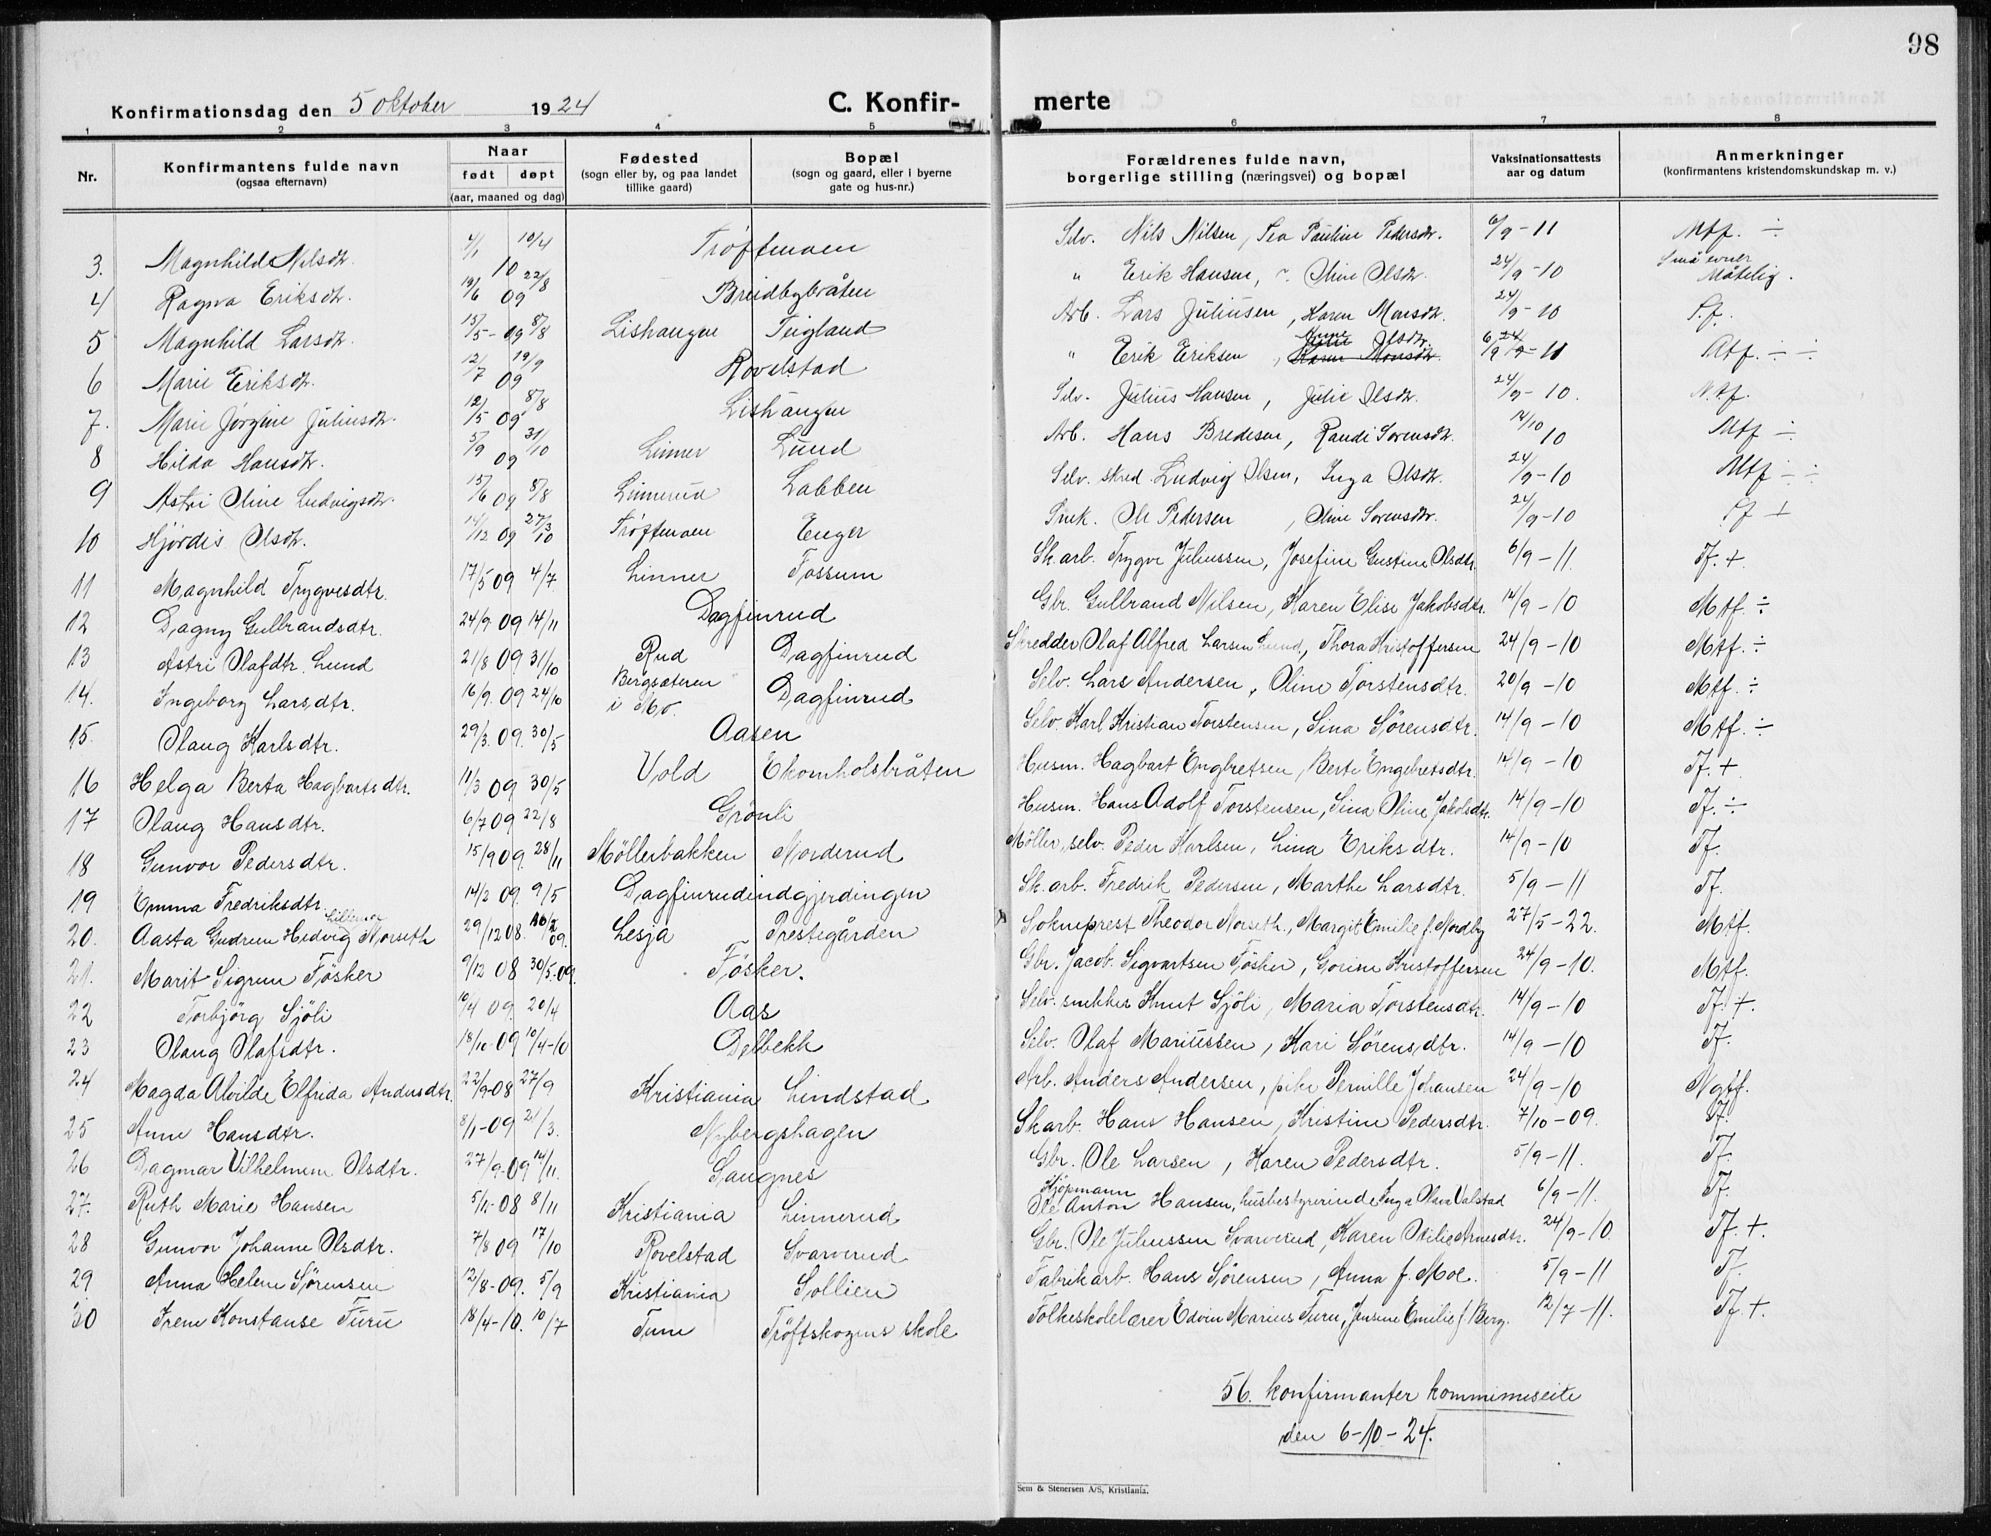 98
Konfirmationsdag den 5 oktober 1924 C. Konfir- merte
1 2 3 4 5 6 7 8
Nr. Konfirmantens fulde navn (ogsaa efternavn) Naar født døpt (aar, maaned og dag) Fødested (sogn eller by, og paa landet tillike gaard) Bopæl (sogn og gaard, eller i byerne gate og hus-nr.) Forældrenes fulde navn, borgerlige stilling (næringsvei) og bopæl Vaksinationsattests aar og datum Anmerkninger (konfirmantens kristendomskundskap m. v.)
3. Magnhild Nilsdtr. 4/1 10 10/4 Trøftmoen Selv. Nils Nilsen, Pauline Pedersdtr. 6/9-11 Mtf. ÷
4 Ragna Eriksdtr. 19/6 09 22/8 Breidbybråten " Erik Hansen, Oline Olsdtr. 24/9-10 Små evner Måtelig.
5 Magnhild Larsdtr. 15/5-09 8/8 Lishaugen Teigland Arb. Lars Juliussen, Karen Monsdtr. 24/9-10
6 Marie Eriksdtr. 12/7 09 19/9 Rovelstad " Erik Eriksen, Olsdtr. Karen Monsdtr. 6/9-11 ÷ ÷
7. Marie Jørgine Juliusdtr. 12/5 09 8/8 Lishaugen Selv. Julius Hansen, Julie Olsdtr. 24/9-10.
8 Hilda Hansdtr. 5/9 09 31/10 Linner Lund Arb. Hans Bredesen, Randi Sørensdtr. 14/10 10 Mtf ÷
9 Astri Oline Ludvigsdtr. 15/6 09 8/8 Linnerud Labben Selv. skred. Ludvig Olsen, Inga Olsdtr. 24/9-10 Mtf ÷ ÷
10 Hjördis Olsdtr. 14/12 09 27/3 10 Trøftmoen Enger Snk. Ole Pedersen, Oline Sørensdtr. 24/9-10
11 Magnhild Trygvesdtr. 17/5 09 4/7 Linner Fossum Sk. arb. Trygve Juliussen, Josefine Gustine Olsdtr. 6/9-11. Tf. +
12 Dagny Gulbrandsdtr. 24/9 09 14/11 Dagfinrud Gbr. Gulbrand Nilsen, Karen Elise Jakobsdtr. 14/9-10 Mtf. ÷
13 Astri Olafdtr. Lund 21/8 09 31/10 Rud Dagfinrud Skredder Olaf Alfred Larsen Lund, Thora Kristoffersen 24/9-10 Mtf. ÷
14. Ingeborg Larsdtr. 16/9. 09 24/10 Bergsæteren i Mo. Dagfinrud Selv. Lars Andersen, Oline Torstensdtr. 20/9-10 Mtf. ÷
15. Olaug Karlsdtr. 29/3. 09. 30/5 Aasen Selv. Karl Kristian Torstensen, Sina Sørensdtr. 14/9-10 Mtf. ÷
16 Helga Berta Hagbartsdtr. 11/3 09 30/5 Vold Ekornholsbråten Husm. Hagbart Engbretsen, Berte Engebretsdtr. 14/9-10 Tf. +
17 Olaug Hansdtr. 6/7 09 22/8 Grønli Husm. Hans Adolf Torstensen, Sina Oline Jakobsdtr. 14/9-10 Tf. ÷
18 Gunvor Pedersdtr. 15/9 09. 28/11 Möllerbakken Norderud Möller, selv. Peder Karlsen, Lina Eriksdtr. 14/9-10 Tf.
19 Emma Fredriksdtr. 14/2 09. 9/5 Dagfinrudindgjerdingen Sk. arb. Fredrik Pedersen, Marthe Larsdtr. 5/9-11 Tf.
20. Aasta Gudrun Hedvig Lillemor Norseth 29/12 08. 09. Lesja Prestegården Sokneprest Theodor Norseth, Margit Emilie f. Nordby 27/5-22. Mtf.
21. Marit Sigrun Fösker 9/12 08 30/5.09. Fösker. Gbr. Jacob Sigvartsen Fösker, Gorine Kristoffersen 24/9-10. Mtf.
22 Torbjörg Sjöli 10/4 09 20/4 Aas Selv. snekker Knut Sjöli, Maria Torstensdtr. 14/9-10 Tf. +.
23 Olaug Olafsdtr. 18/10-09 10/4-10 Delbekk Selv. Olaf Mariussen, Kari Sørensdtr. 14/9-10 Tf.
24 Magda Alvilde Elfrida Andersdtr. 22/9-08 27/9 Kristiania Lindstad Arb. Anders Andersen, pike Pernille Johansen 24/9-10 Ngtf.
25 Anne Hansdtr. 8/1-09 21/3. Nybergshagen Sk arb. Hans Hansen, Kristine Pedersdtr. 7/10-09. Tf.
26 Dagmar Vilhelmine Olsdtr. 27/9-09 14/11. Saugnes Gbr. Ole Larsen, Karen Pedersdtr. 5/9-11. Tf.
27. Ruth Marie Hansen 5/11-08 8/11 Kristiania Linnerud Kjöpmann Ole Anton Hansen, husbestyrerinde Inga Olava Valstad 6/9-11. Tf.
28 Gunvor Johanne Olsdtr. 7/8 09 17/10 Rovelstad Svarverud Gbr. Ole Juliussen Svarverud, Karen Otilie Arnesdtr. 24/9-10. Tf. +.
29 Anna Helene Sørensen 12/8-09. 5/9 Kristiania Sollien Fabrikarb. Hans Sørensen, Anna f. Moe. 5/9-11 Tf.
30 Irene Konstanse Furu 18/4-10. 10/7 Tune Tröftskogens skole Folkeskolelærer Edvin Marius Furu, Jensine Emilie f. Berg. 12/7-11. Tf. +.
56. konfirmanter
den 6-10-24.
Sem & Stenersen A/S, Kristiania.